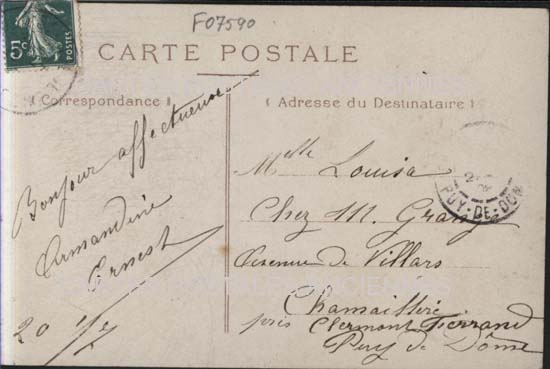 F07590
5c
POSTES
CARTE POSTALE
(Correspondance)
(Adresse du Destinataire)
Bonjour affectueuse
Armandine
Ernest
20
Melle Louisa
Chez M. Grang
Avenue de Villars
Chamalière
près Clermont Ferrand
Puy de Dôme
PUY-DE-DOM